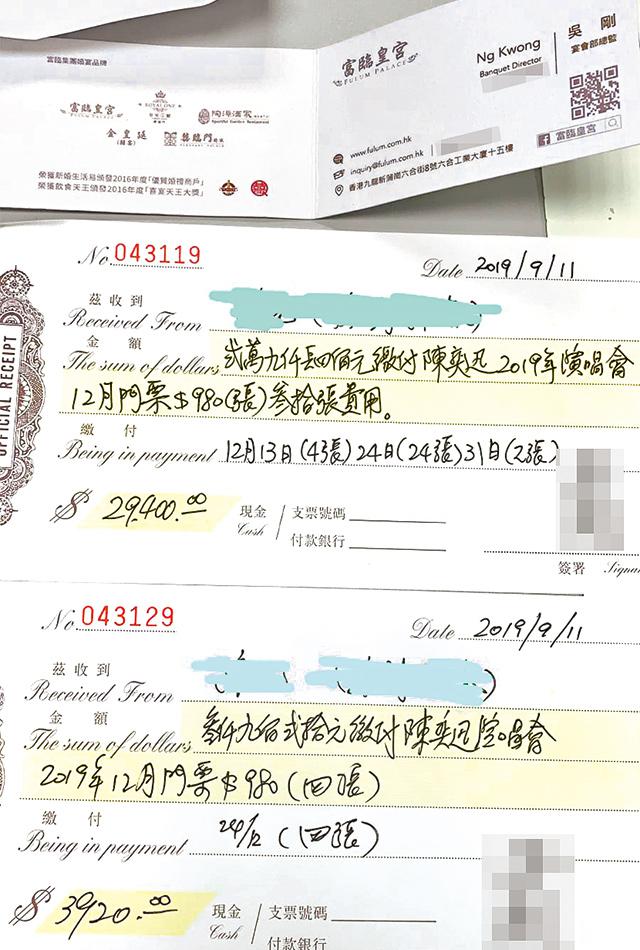 富臨集團婚宴品牌
富臨皇宮
FULUM PALACE
ROYAL ONE
陶源酒家
Sportful Garden Restaurant
金皇廷
囍臨門
榮獲新婚生活易頒發2016年度「優質婚禮商戶」
榮獲飲食天王頒發2016年度「喜宴天王大獎」
富臨皇宮
FULUM PALACE
Ng Kwong
Banquet Director
吳剛
宴會部總監
www.fulum.com.hk
inquiry@fulum.com.hk
香港九龍新蒲崗六合街8號六合工業大廈十五樓
富臨皇宮
OFFICIAL RECEIPT
No 043119
Date 2019/9/11
茲收到
Received From
金額
The sum of dollars 弍萬九仟四佰元繳付陳奕迅2019年演唱會
12月門票$980(張)叁拾張費用。
繳付
Being in payment 12月13日(4張)24日(24張)31日(2張)
$ 29,400.00
現金
Cash
支票號碼
付款銀行
簽署
No 043129
Date 2019/9/11
茲收到
Received From
金額
The sum of dollars 叁仟九佰弍拾元繳付陳奕迅演唱會
2019年12月門票$980(四張)
繳付
Being in payment 24/12 (四張)
$ 3920.00
現金
Cash
支票號碼
付款銀行